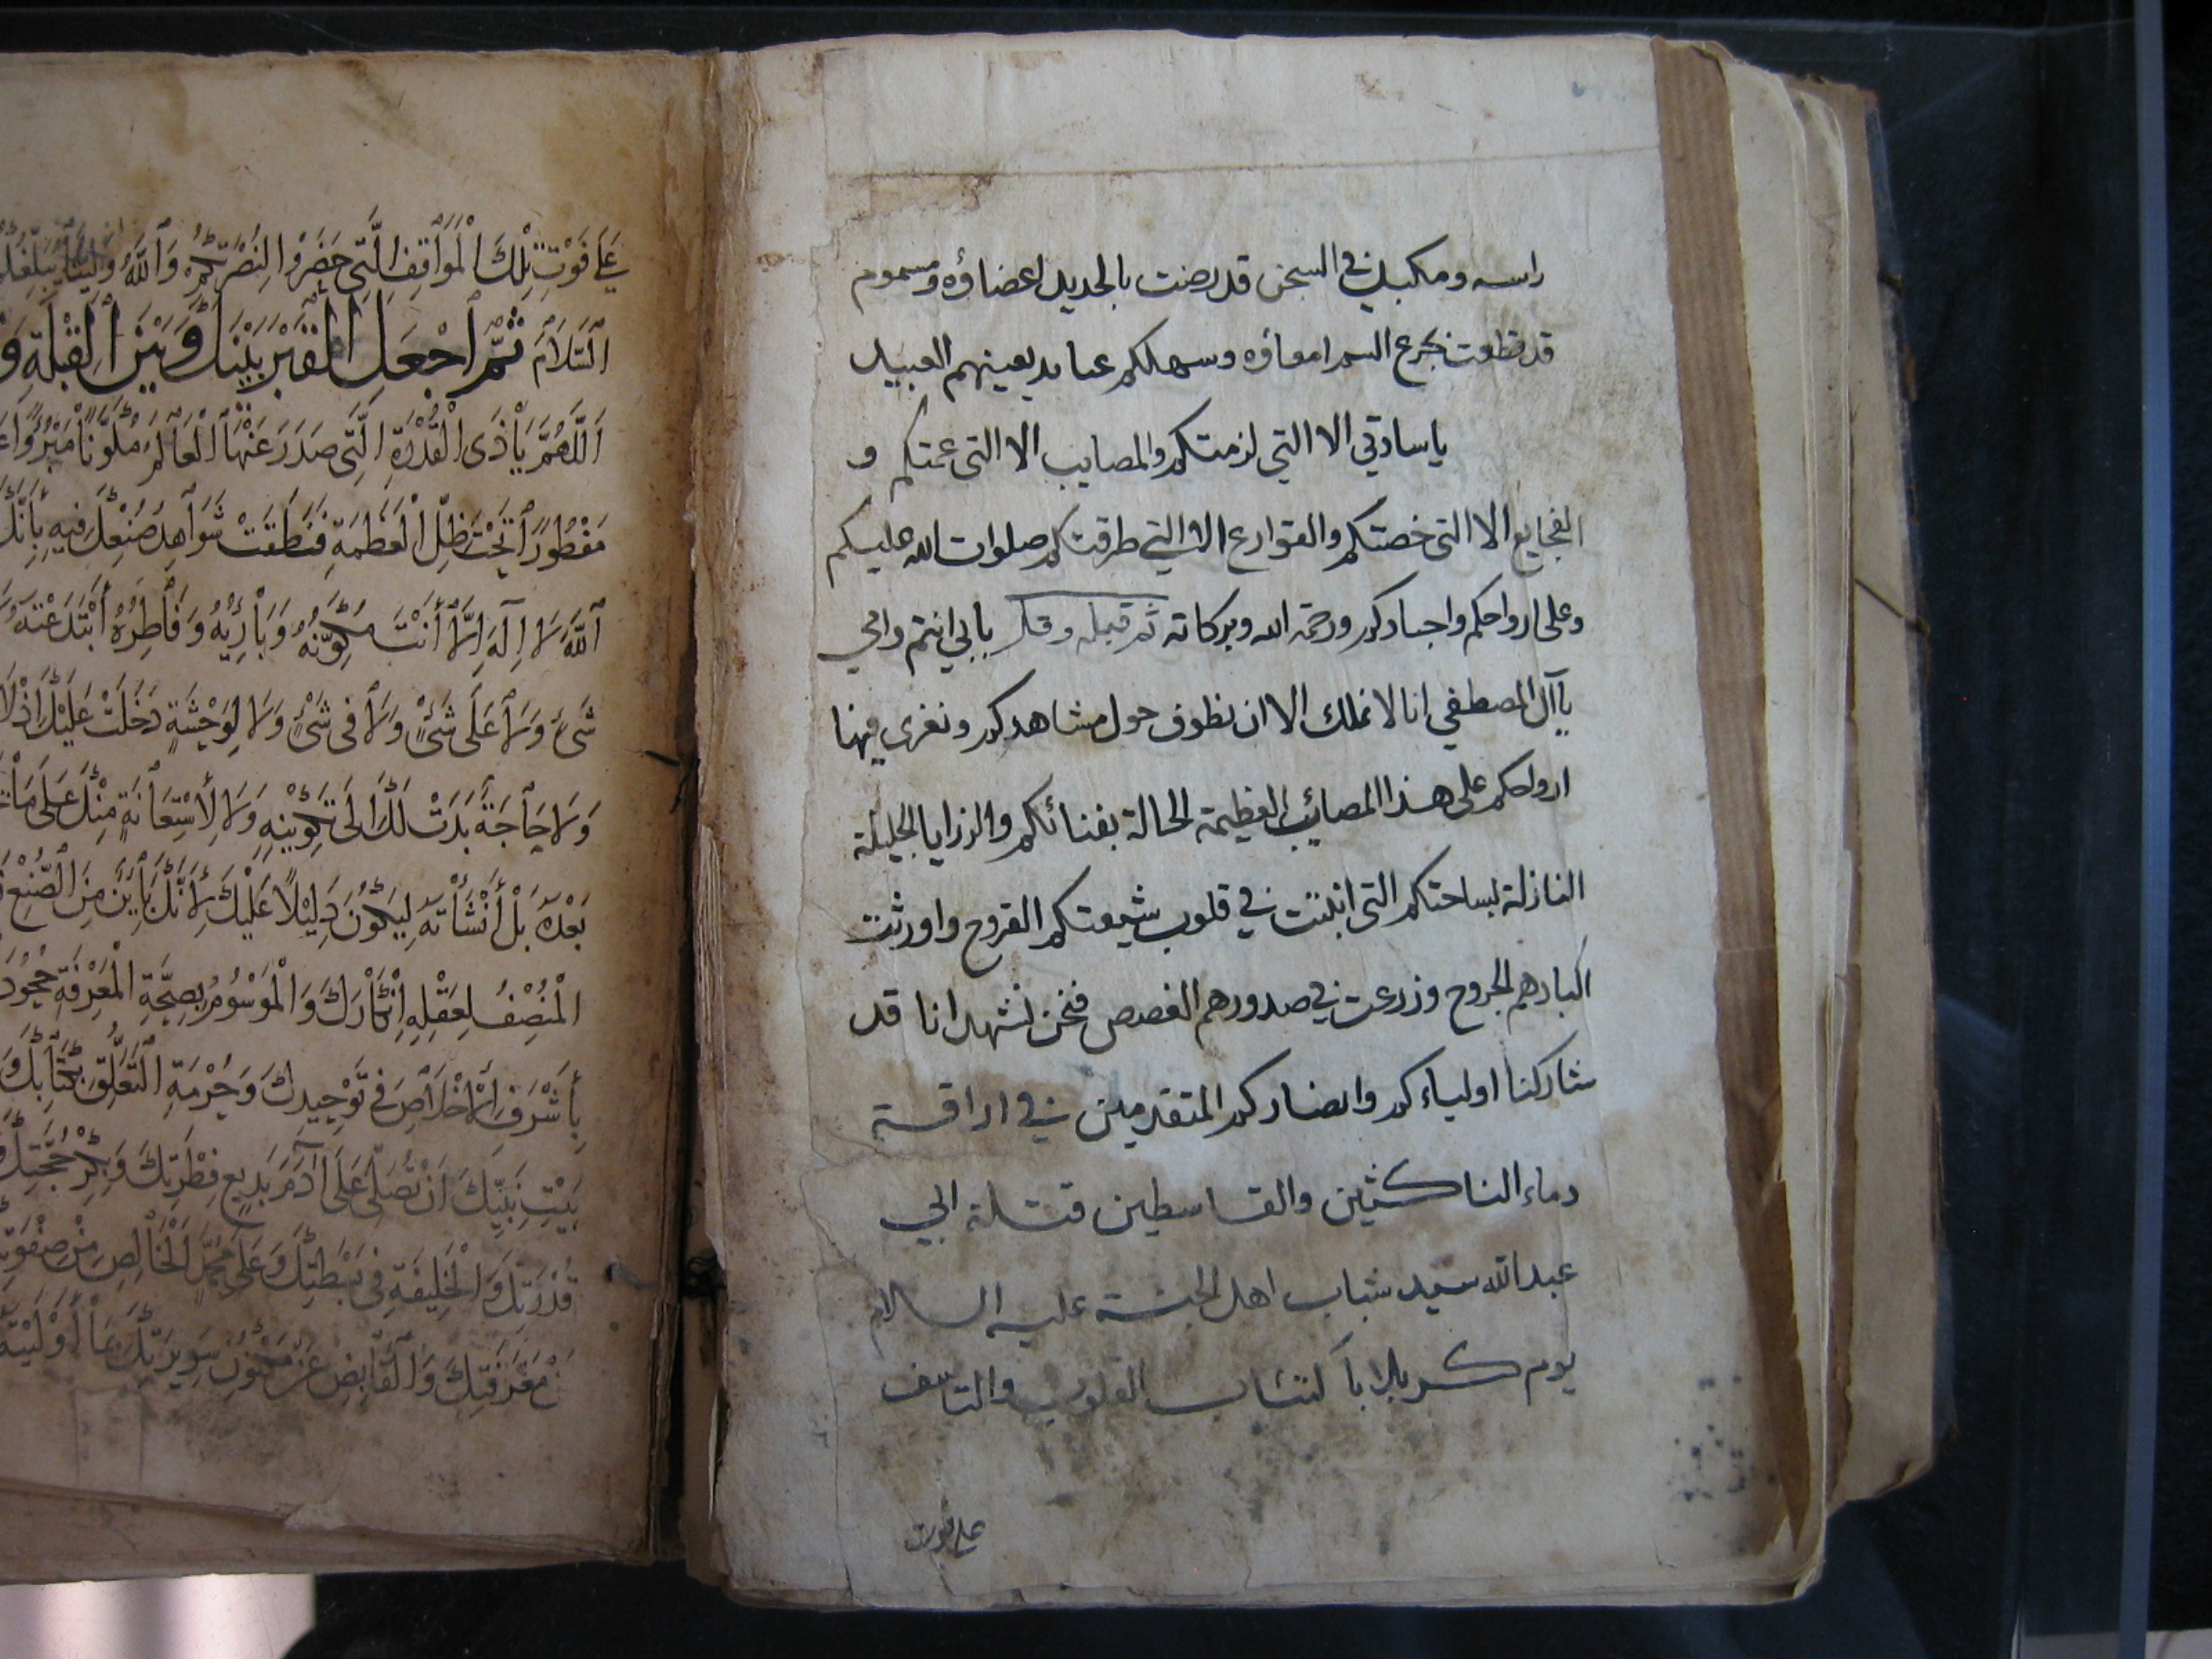 راسه ومكبل في السجن قد رضت بالحديد اعضاؤه ومسموم
قد قطعت بجرع السم امعاؤه وسملكم عباديد يعينهم العبيد
ياسادتي الا التي لزمتكم والمصايب الا التي عمتكم و
الفجايع الا التي خصتكم والقوارع الا التي طرقتكم صلوات الله عليكم
وعلى ارواحكم واجسادكم ورحمة الله وبركاته ثم قبله وقل بابي انتم وامي
ياآل المصطفي انا لا نملك الا ان نطوف حول مشاهدكم ونعزي فيها
ارواحكم على هذا المصائب العظيمة الحالة بفنائكم والرزايا الجليلة
النازلة بساحتكم التي اثبتت في قلوب شيعتكم القروح واورثت
اكبادهم الجروح وزرعت في صدورهم الغصص فنحن نشهد انا قد
شاركنا اولياءكم وانصاركم المتقدمين في اراقة
دماء الناكثين والقاسطين وقتلة ابي
عبدالله سيد شباب اهل الجنة عليه السلام
يوم كربلا باكتئاب القلوب والتاسف
على فوت
عَلَى فَوْتِ تِلْكَ الْمَوَاقِفِ الَّتِي حَضَرُوا لِنُصْرَتِكُمْ وَاللَّهُ وَلِيُّنَا يُبَلِّغُكُمْ
السَّلَامَ ثُمَّ اجْعَلِ الْقَبْرَ بَيْنَكَ وَبَيْنَ الْقِبْلَةِ وَ
اَللَّهُمَّ يَا ذَى الْقُدْرَةِ الَّتِي صَدَرَ عَنْهَا الْعَالَمُ مُكَوَّنًا مَبْرُوًّا
مَفْطُورًا تَحْتَ ظِلِّ الْعَظَمَةِ فَنَطَقَتْ شَوَاهِدُ صُنْعِكَ فِيهِ بِأَنَّكَ
اللَّهُ لَا اِلَهَ اِلَّا أَنْتَ مُكَوِّنُهُ وَبَارِئُهُ وَفَاطِرُهُ أَبْتَدَعْتَهُ
شَيْءٍ وَلَا عَلَى شَيْءٍ وَلَا فِى شَيْءٍ وَلَا لِوَحْشَةٍ دَخَلَتْ عَلَيْكَ اِذْ لَا
وَلَا حَاجَةٍ بَدَتْ لَكَ فِى تَكْوِينِهِ وَلَا لِاسْتِعَانَةٍ مِنْكَ عَلَى مَا
بَعْدَهُ بَلْ أَنْشَأْتَهُ لِيَكُونَ دَلِيلًا عَلَيْكَ بِأَنَّكَ بَايِنٌ مِنَ الصُّنْعِ
الْمُنْصِفُ لِعَقْلِهِ اِنْكَارَكَ وَالْمَوْسُومُ بِصِحَّةِ الْمَعْرِفَةِ جُحُودَ
بِأَشْرَفِ الْاِخْلَاصِ فِى تَوْحِيدِكَ وَحُرْمَةِ التَّعَلُّقِ بِكِتَابِكَ وَ
بَيْتِ نَبِيِّكَ اَنْ تُصَلِّىَ عَلَى آدَمَ بَدِيعِ فِطْرَتِكَ وَبِكْرِ حُجَّتِكَ
قُدْرَتِكَ وَالْخَلِيفَةِ فِى بَسِيطَتِكَ وَعَلَى مُحَمَّدٍ الْخَالِصِ مِنْ صِفْوَتِكَ
مَعْرِفَتِكَ وَالْقَابِضِ عَنْ مَكْنُونِ سَرِيرَتِكَ بِمَا أَوْلَيْتَهُ